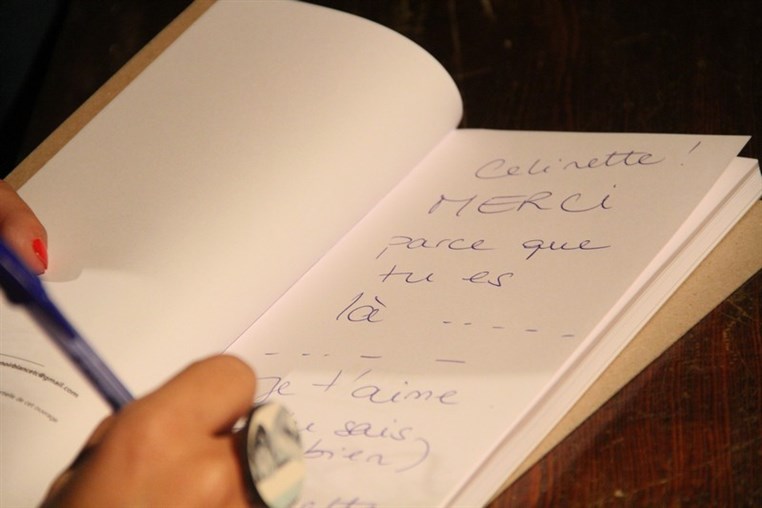 Celinette !
MERCI
parce que
tu es
là - - - - -
- - - - -
je t'aime
sais
bien)
@gmail.com
de cet ouvrage